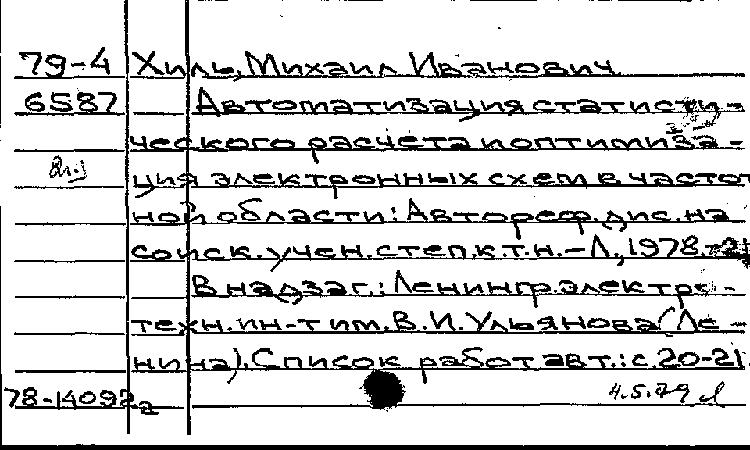 79-4 Хиль, Михаил Иванович
6587 Автоматизация статисти-
ческого расчёта и оптимиза-
ция электронных схем в частот
ной области: Автореф. дис. на
соиск. учен. степ. к.т.н. – Л., 1978. – 21
В надзаг.: Ленингр. электро-
техн. ин-т им. В. И. Ульянова (Ле-
нина). Список работ авт.: с. 20-21.
78-14092 4.5.79